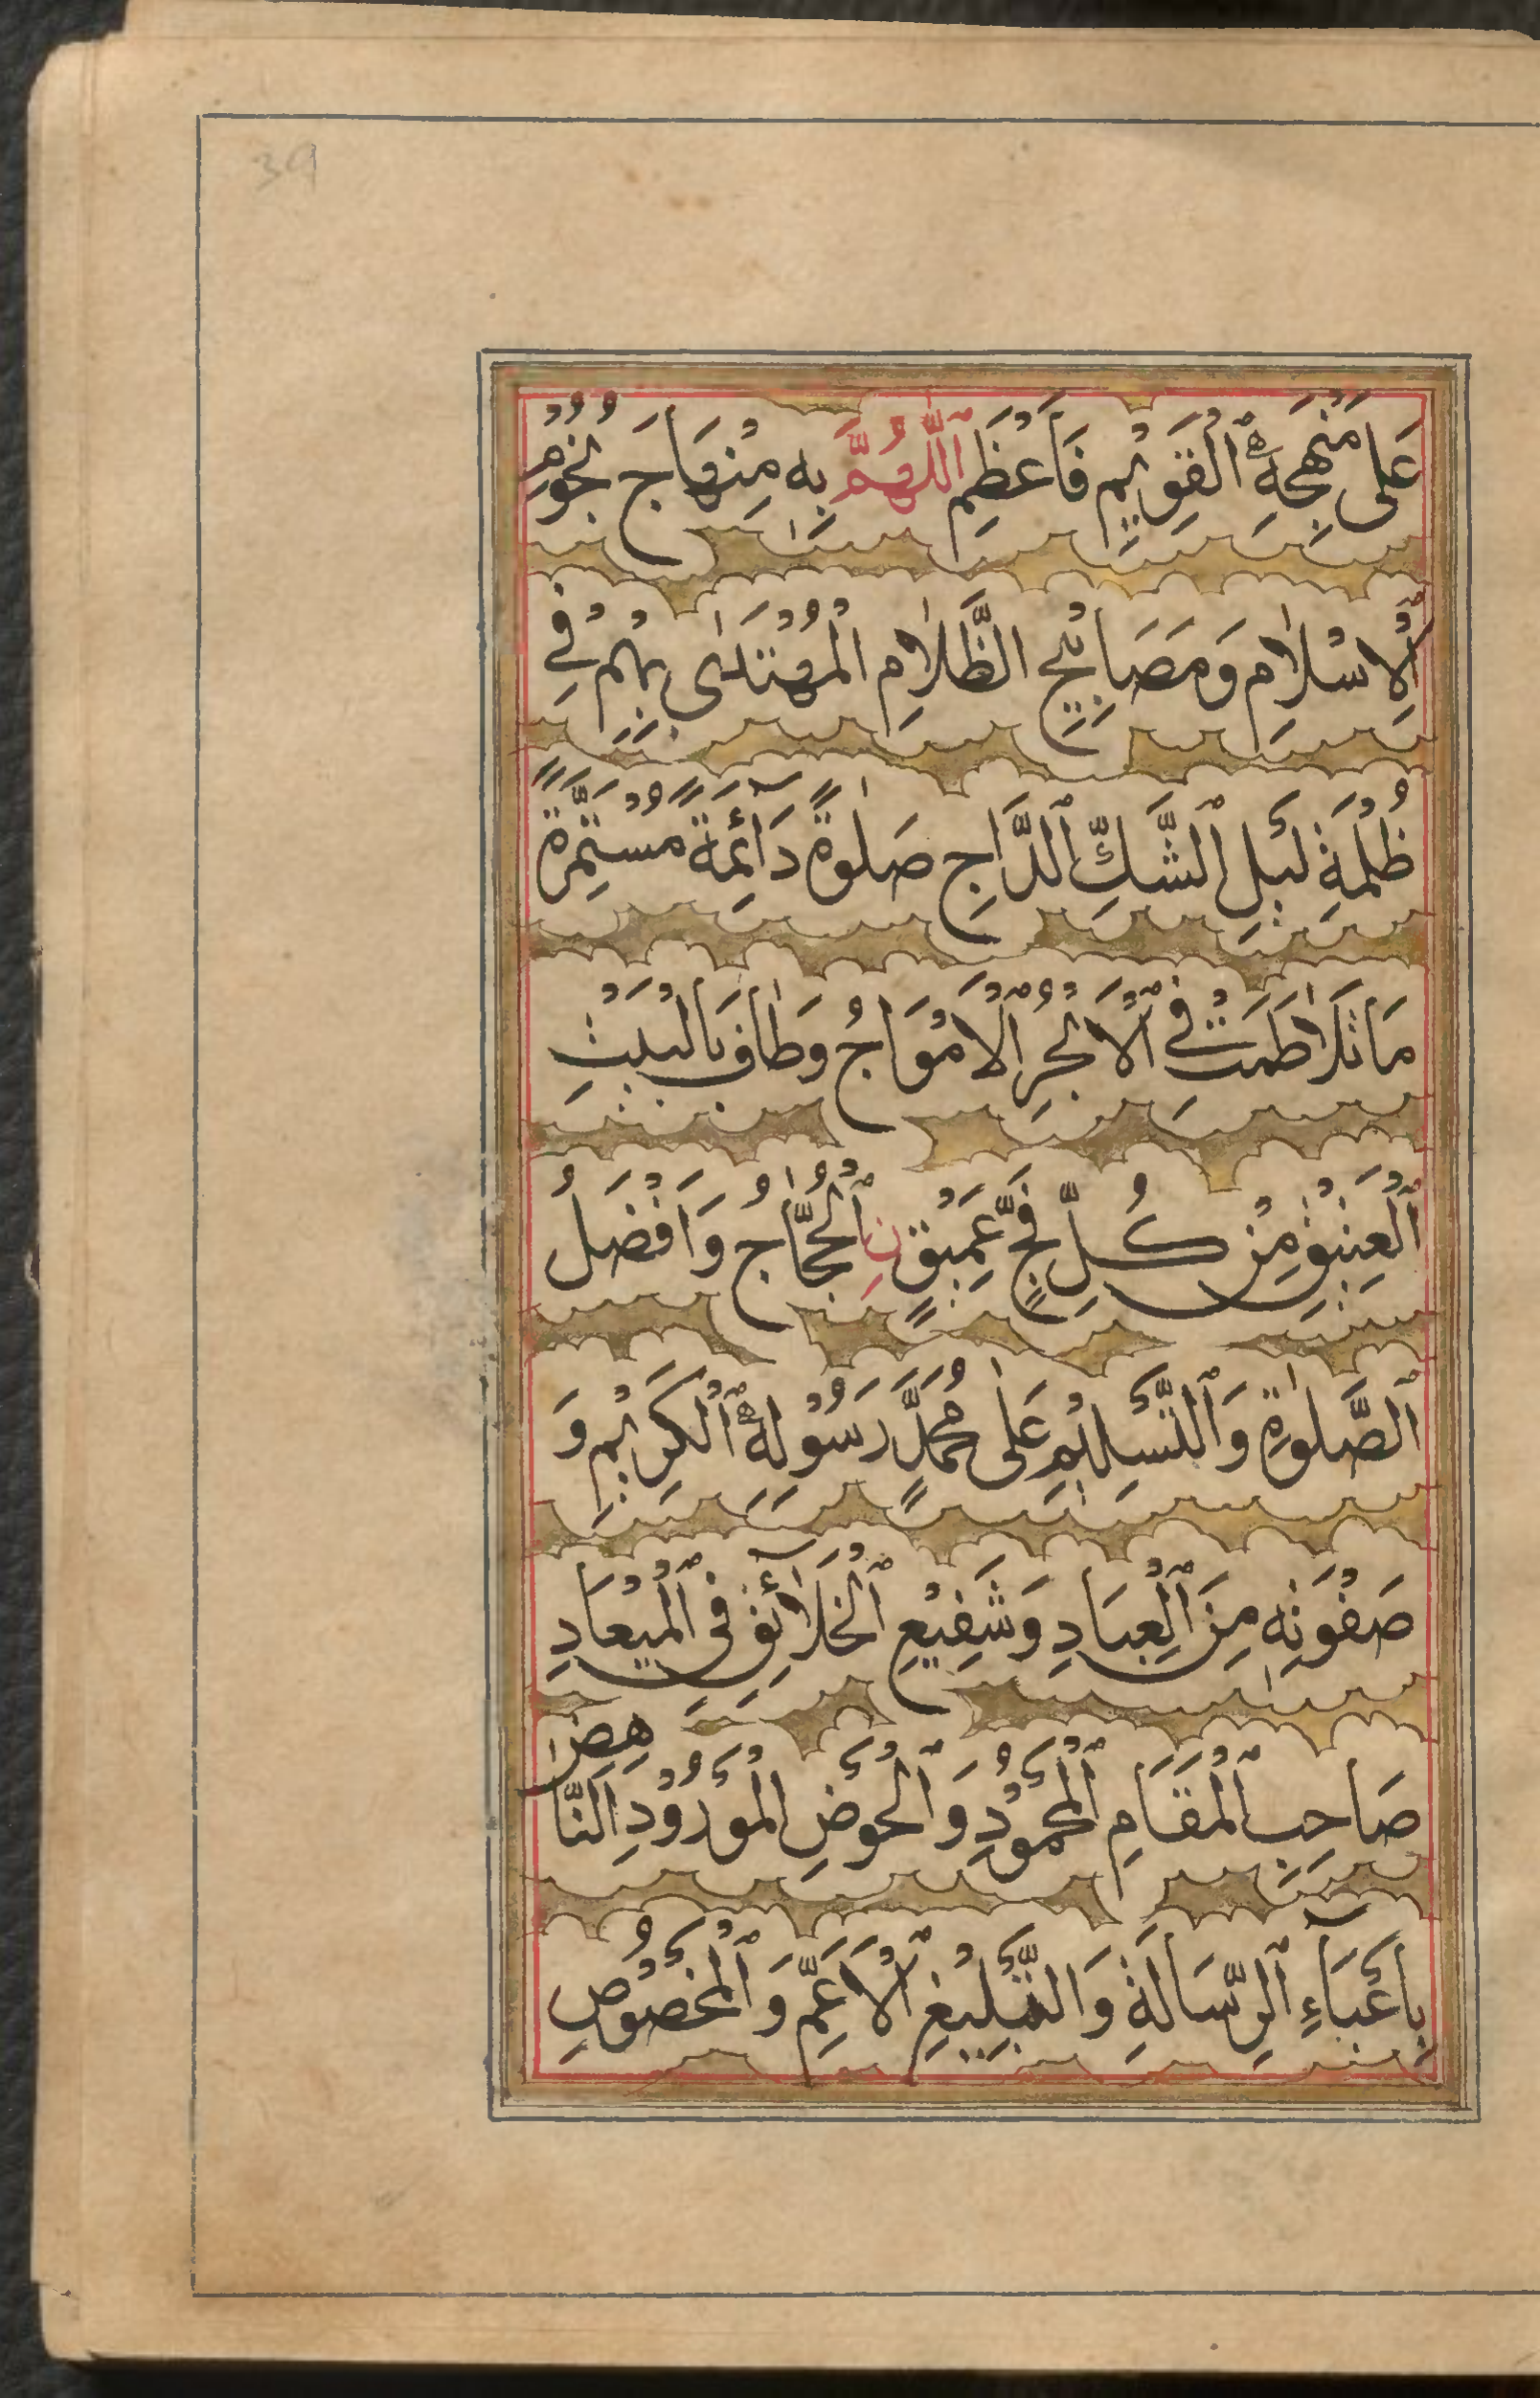 39
عَلى مَنْهَجِهِ ٱلْقَوِيْمِ فَأَعْظِمِ ٱللّٰهُمَّ بِهٖ مِنْهَاجَ نُجُوْمِ
ٱلْاِسْلٰامِ وَمَصَابِيْحِ الظَّلٰامِ الْمُهْتَدٰى بِهِمْ فِي
ظُلْمَةِ لَيْلِ ٱلشَّكِّ ٱلدَّاجِ صَلٰوةً دَآئِمَةً مُسْتَمِرَّةً
مَا تَلَاطَمَتْ فِي ٱلْاَبْحُرِ ٱلْاَمْوَاجُ وَطَافَ بِالْبَيْتِ
ٱلْعَتِيْقِ مِنْ كُلِّ فَجٍّ عَمِيْقٍ نِ ٱلْحُجَّاجُ وَاَفْضَلُ
ٱلصَّلٰوةِ وَٱلتَّسْلِيْمِ عَلٰى مُحَمَّدٍ رَسُوْلِهِ ٱلْكَرِيْمِ وَ
صَفْوَتِهٖ مِنَ ٱلْعِبَادِ وَشَفِيْعِ ٱلْخَلَآئِقِ فِي ٱلْمِيْعَادِ
صَاحِبِ ٱلْمَقَامِ ٱلْمَحْمُوْدِ وَٱلْحَوْضِ الْمَوْرُوْدِ النَّاهِضِ
بِاَعْبَآءِ ٱلرِّسَالَةِ وَالتَّبْلِيْغِ ٱلْاَعَمِّ وَٱلْمَخْصُوْصِ